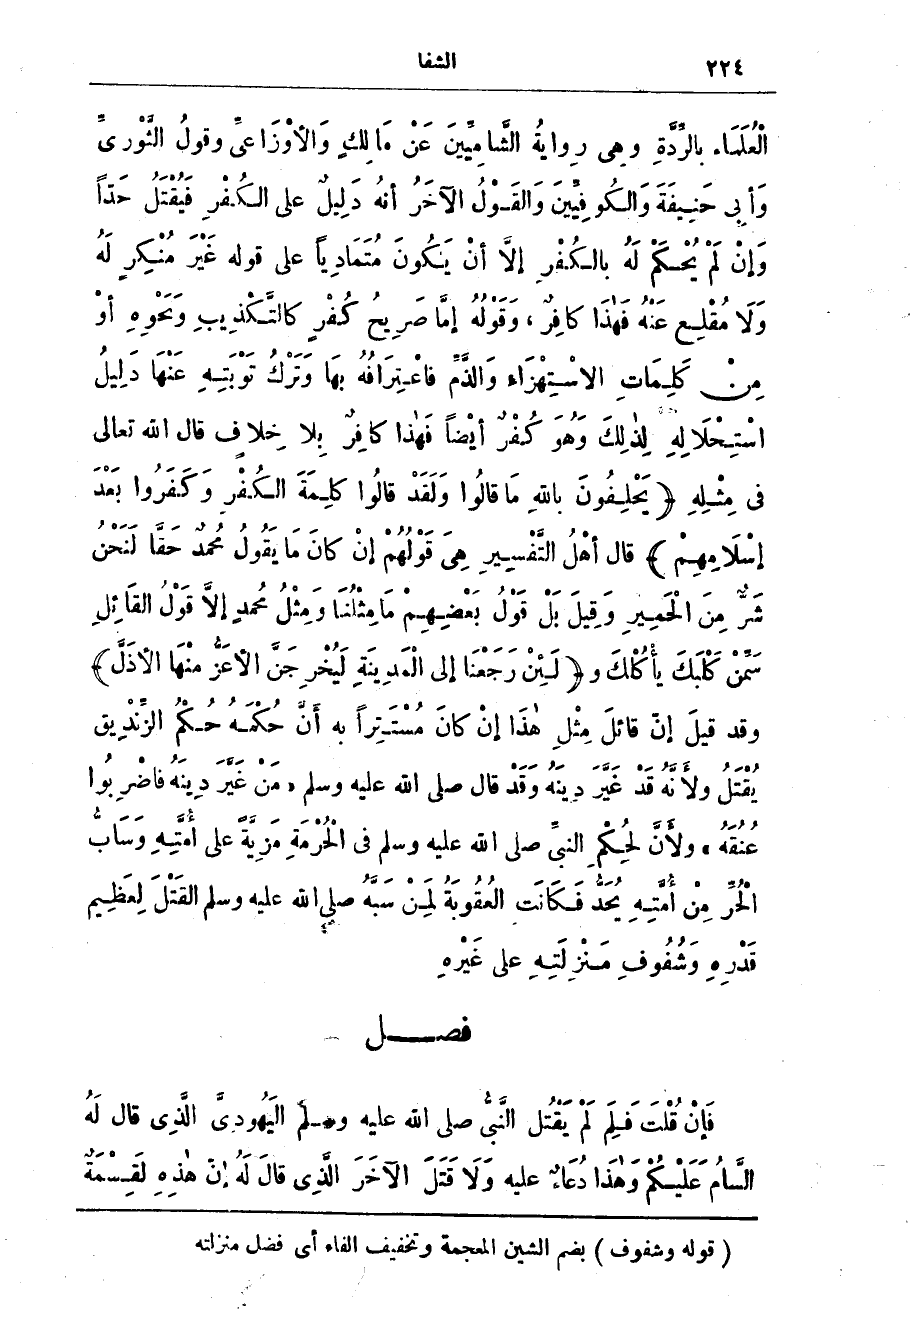 ٢٢٤ الشفا
الْعُلَمَاء بالرِّدَّةِ وهى رِوايةُ الشَّامِيِّينَ عَنْ مَالِكٍ وَالأوْزَاعىِّ وقولُ الثَّوْرىِّ
وَأبى حَنِيفَةَ وَالكُوفِيِّينَ وَالقَوْلُ الآخَرُ أنهُ دَلِيلٌ على الكُفْرِ فَيُقْتَلُ حَدّاً
وَإنْ لَمْ يُحْكَمْ لَهُ بالكُفْرِ إلَّا أنْ يَكُونَ مُتَمَادِياً على قوله غَيْرَ مُنْكِرٍ لَهُ
وَلَا مُقْلِعٍ عَنْهُ فَهٰذَا كافِرٌ، وَقَوْلُهُ إمَّا صَرِيحُ كُفْرٍ كالتَّكْذِيبِ وَنَحْوِهِ أوْ
مِنْ كَلِمَاتِ الاسْتِهْزَاء وَالذَّمِّ فاعْتِرَافُهُ بهَا وَتَرْكُ تَوْبَتِهِ عَنْهَا دَلِيلُ
اسْتِحْلَالِهِ لِذٰلِكَ وَهُوَ كُفْرٌ أيْضاً فَهٰذا كافِرٌ بِلا خِلافٍ قال الله تعالى
فى مِثْلِهِ ﴿ يَحْلِفُونَ باللهِ مَا قالُوا وَلَقَدْ قالُوا كلِمَةَ الكُفْرِ وَكَفَرُوا بَعْدَ
إسْلَامِهِمْ ﴾ قال أهْلُ التَّفْسِيرِ هِىَ قَوْلُهُمْ إنْ كانَ مَا يَقُولُ مُحمدٌ حَقًّا لَنَحْنُ
شَرٌّ مِنَ الْحَمِيرِ وَقِيلَ بَلْ قَوْلُ بَعْضِهِمْ مَا مِثْلُنَا وَمِثْلُ مُحمدٍ إلَّا قَوْلُ القَائِلِ
سَمِّنْ كَلْبَكَ يأْكُلْكَ و ﴿ لَئِنْ رَجَعْنَا إلى الْمَدِينَةِ لَيُخْرِجَنَّ الأعَزُّ مِنْهَا الأذَلَّ ﴾
وقد قيلَ إنّ قائلَ مِثْلِ هٰذَا إنْ كانَ مُسْتَتِراً به أنَّ حُكْمَهُ حُكْمُ الزِّنْدِيقِ
يُقْتَلُ ولأنَّهُ قَدْ غَيَّرَ دِينَهُ وَقَدْ قال صلى الله عليه وسلم « مَنْ غَيَّرَ دِينَهُ فاضْرِبُوا
عُنُقَهُ » ولأنَّ لِحُكْمِ النبىِّ صلى الله عليه وسلم فى الْحُرْمَةِ مَزِيَّةً على أُمَّتِهِ وَسَابُّ
الْحُرِّ مِنْ أُمَّتِهِ يُحَدُّ فَكَانَت العُقُوبَةُ لِمَنْ سَبَّهُ صلى الله عليه وسلم القَتْلَ لِعَظِيمِ
قَدْرِهِ وَشُفُوفِ مَنْزِلَتِهِ على غَيْرِهِ
فصـــل
فَإنْ قُلْتَ فَلِمَ لَمْ يَقْتُلِ النَّبىُّ صلى الله عليه وسلم اليَهُودىَّ الَّذِى قال لَهُ
السَّامُ عَلَيْكُمْ وَهٰذَا دُعَاءٌ عليه وَلَا قَتَلَ الآخَرَ الَّذِى قالَ لَهُ إنّ هٰذِهِ لَقِسْمَةٌ
( قوله وشفوف ) بضم الشين المعجمة وتخفيف الفاء أى فضل منزلته